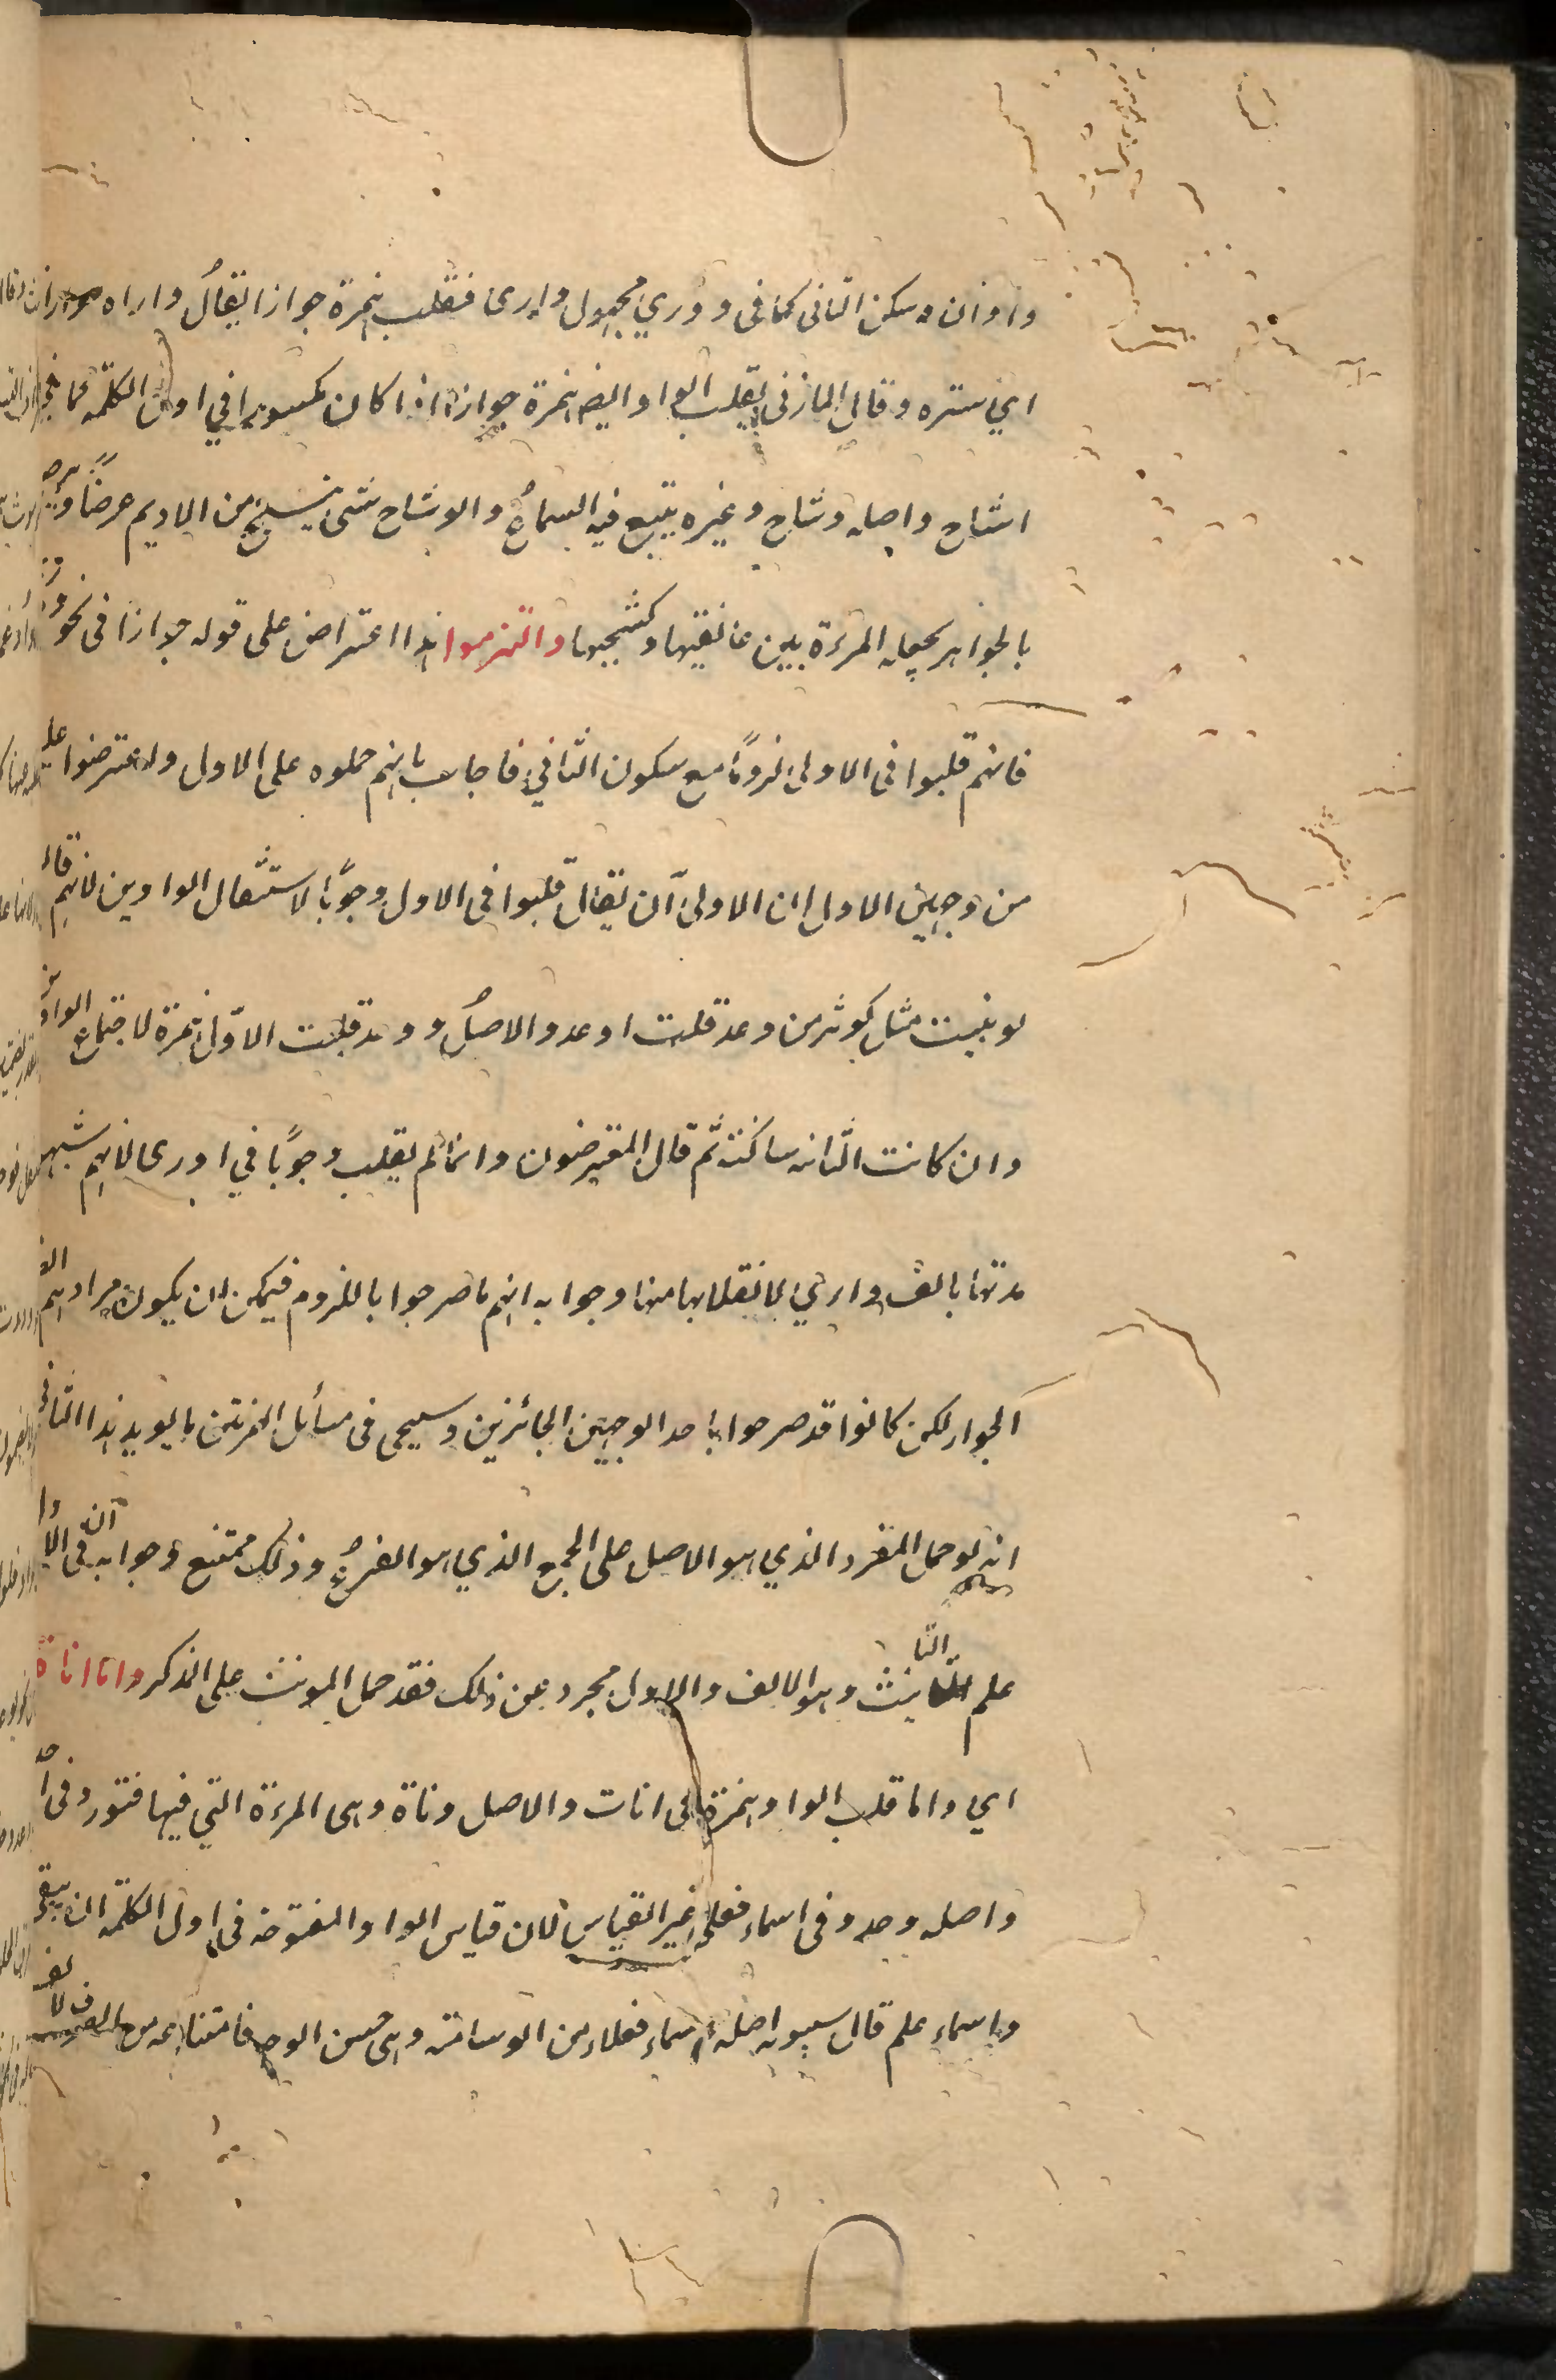 واو ان سكن الثانی كما فی ووري مجهول وارى فتقلب همزة جوازا يقال واراه مواراة
اي ستره وقال المازنی يقلب الواو ايضا همزة جوازا اذا كان مكسورا في اول الكلمة كما فی
اشاح واصله وشاح وغيره يتبع فيه السماع والوشاح شیء ينسج من الاديم عرضا ويرصع
بالجواهر يجعله المرءة بين عاتقيها وكشحيها والتزموا هذا اعتراض على قوله جوازا فی نحو ووري
فانهم قلبوا فی الاولى لزوما مع سكون الثاني فاجاب بانهم حملوه على الاول واعترضوا عليه
من وجهين الاول ان الاولى ان يقال قلبوا فی الاول وجوبا لاستثقال الواوين لانهم قالوا
لو بنيت مثل كوثر من وعد قلت اوعد والاصل ووعد قلبت الاول همزة لاجتماع الواوين
وان كانت الثانيه ساكنة ثم قال المعترضون وانما لم يقلب وجوبا في اورى لانهم شبهوا
مدتها بالف وارى لانقلابها منها وجوابه انهم ما صرحوا باللزوم فيمكن ان يكون مرادهم
الجواز لكن كانوا قد صرحوا باحد الوجهين الجائزين وسيجی فی مسائل الهمزتين ما يويد هذا الثانی
انه لو حمل المفرد الذي هو الاصل على الجمع الذي هو الفرع وذلك ممتنع وجوابه ان فی الاولى
علم التانيث وهو الالف والاول مجرد عن ذلك فقد حمل المونث على المذكر واما اناة
اي واما قلب الواو همزة فی انات والاصل وناة وهی المرءة التي فيها فتور وفی احد
واصله وحد وفی اسماء فعلى غير القياس لان قياس الواو المفتوحة فی اول الكلمة ان يبقى
واسماء علم قال سيبويه اصله اسماء فعلاء من الوسامة وهی حسن الوجه فامتناعه من الصرف